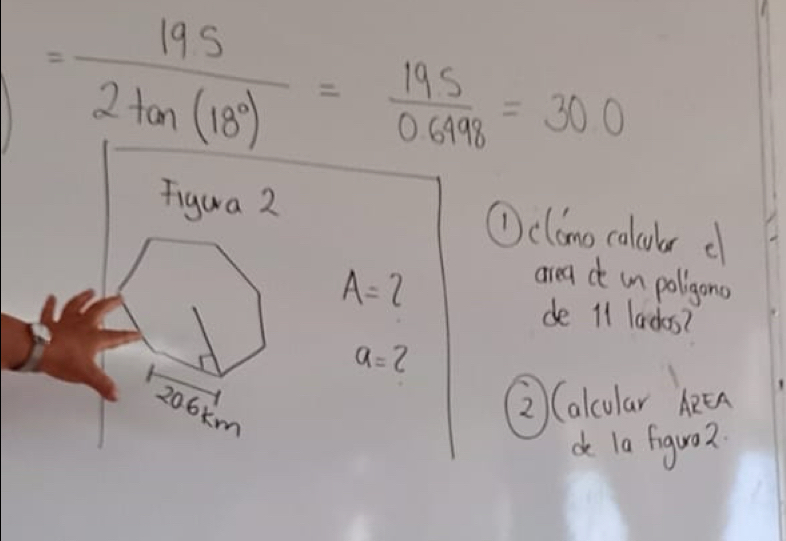 = 19.5 / 2 tan (18°) = 19.5 / 0.6498 = 30.0
Figura 2
A = ?
a = ?
20.6 km
① ¿Cómo calcular el
area de un polígono
de 11 lados?
② Calcular AREA
de la figura 2.